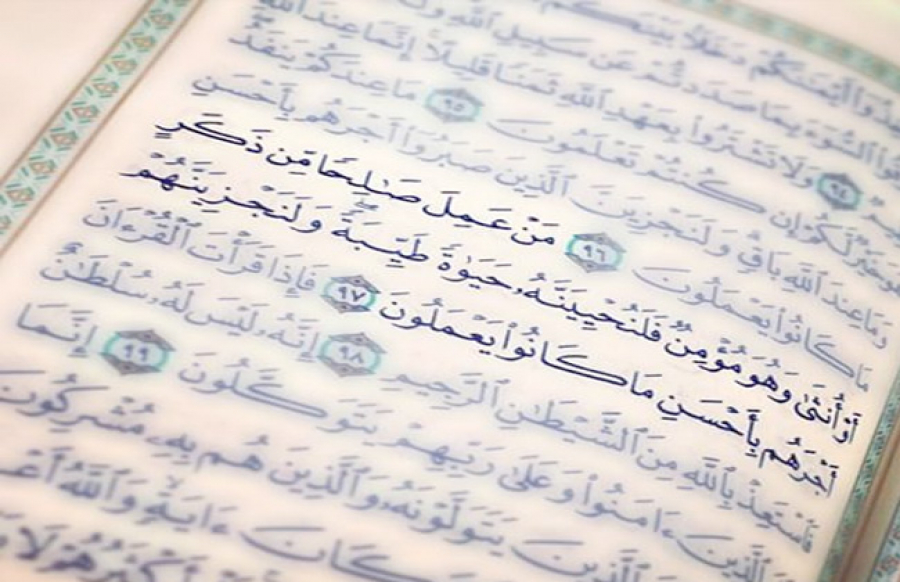 أَيْمَٰنَكُمْ دَخَلًۢا بَيْنَكُمْ
ٱلسُّوٓءَ بِمَا صَدَدتُّمْ عَن سَبِيلِ ٱللَّهِ
٩٤ وَلَا تَشْتَرُوا۟ بِعَهْدِ ٱللَّهِ ثَمَنًا قَلِيلًا إِنَّمَا عِندَ ٱللَّهِ
هُوَ خَيْرٌ لَّكُمْ إِن كُنتُمْ تَعْلَمُونَ ٩٥ مَا عِندَكُمْ يَنفَدُ
وَمَا عِندَ ٱللَّهِ بَاقٍ وَلَنَجْزِيَنَّ ٱلَّذِينَ صَبَرُوٓا۟ أَجْرَهُم بِأَحْسَنِ
مَا كَانُوا۟ يَعْمَلُونَ ٩٦ مَنْ عَمِلَ صَٰلِحًا مِّن ذَكَرٍ
أَوْ أُنثَىٰ وَهُوَ مُؤْمِنٌ فَلَنُحْيِيَنَّهُۥ حَيَوٰةً طَيِّبَةً وَلَنَجْزِيَنَّهُمْ
أَجْرَهُم بِأَحْسَنِ مَا كَانُوا۟ يَعْمَلُونَ ٩٧ فَإِذَا قَرَأْتَ ٱلْقُرْءَانَ
فَٱسْتَعِذْ بِٱللَّهِ مِنَ ٱلشَّيْطَٰنِ ٱلرَّجِيمِ ٩٨ إِنَّهُۥ لَيْسَ لَهُۥ سُلْطَٰنٌ
ٱلَّذِينَ ءَامَنُوا۟ وَعَلَىٰ رَبِّهِمْ يَتَوَكَّلُونَ ٩٩ إِنَّمَا
ٱلَّذِينَ يَتَوَلَّوْنَهُۥ وَٱلَّذِينَ هُم بِهِۦ مُشْرِكُونَ
مَّكَانَ ءَايَةٍ وَٱللَّهُ
أَكْثَرُهُمْ لَا